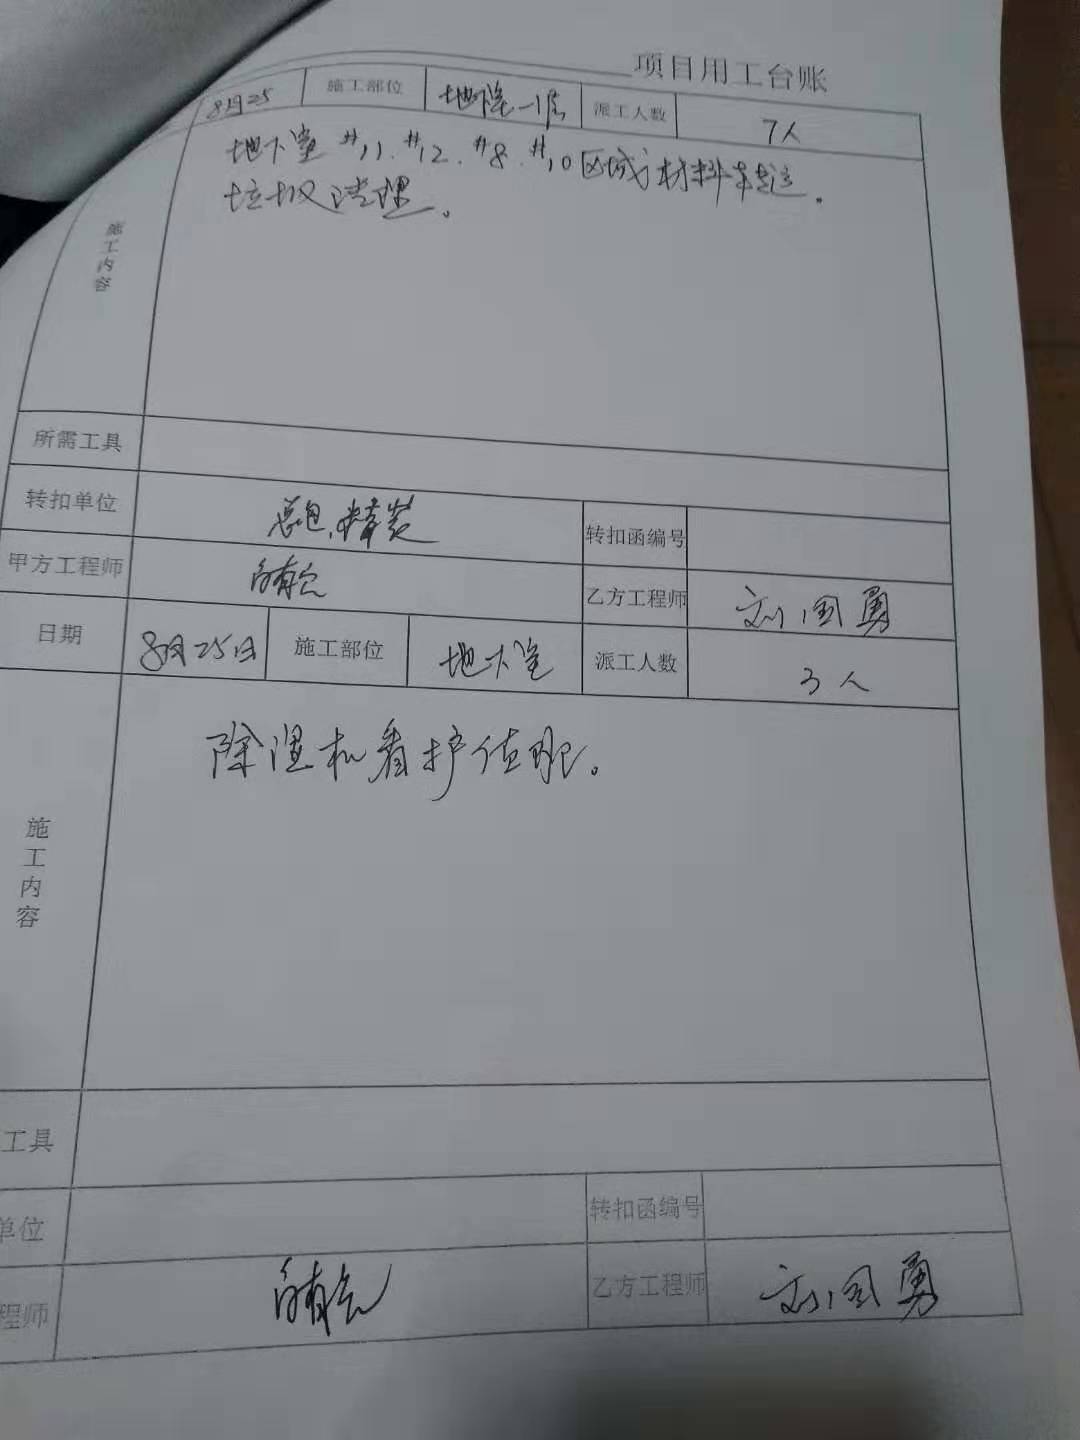 项目用工台账
8月25 施工部位 地下室一层 派工人数 7人
施工内容
地下室 #11. #12. #8. #10区域材料转运
垃圾清理。
所需工具
转扣单位 总包.精装 转扣函编号
甲方工程师 乙方工程师 刘国勇
日期 8月25日 施工部位 地下室 派工人数 3人
施工内容
除湿机看护值班。
工具
单位 转扣函编号
程师 乙方工程师 刘国勇